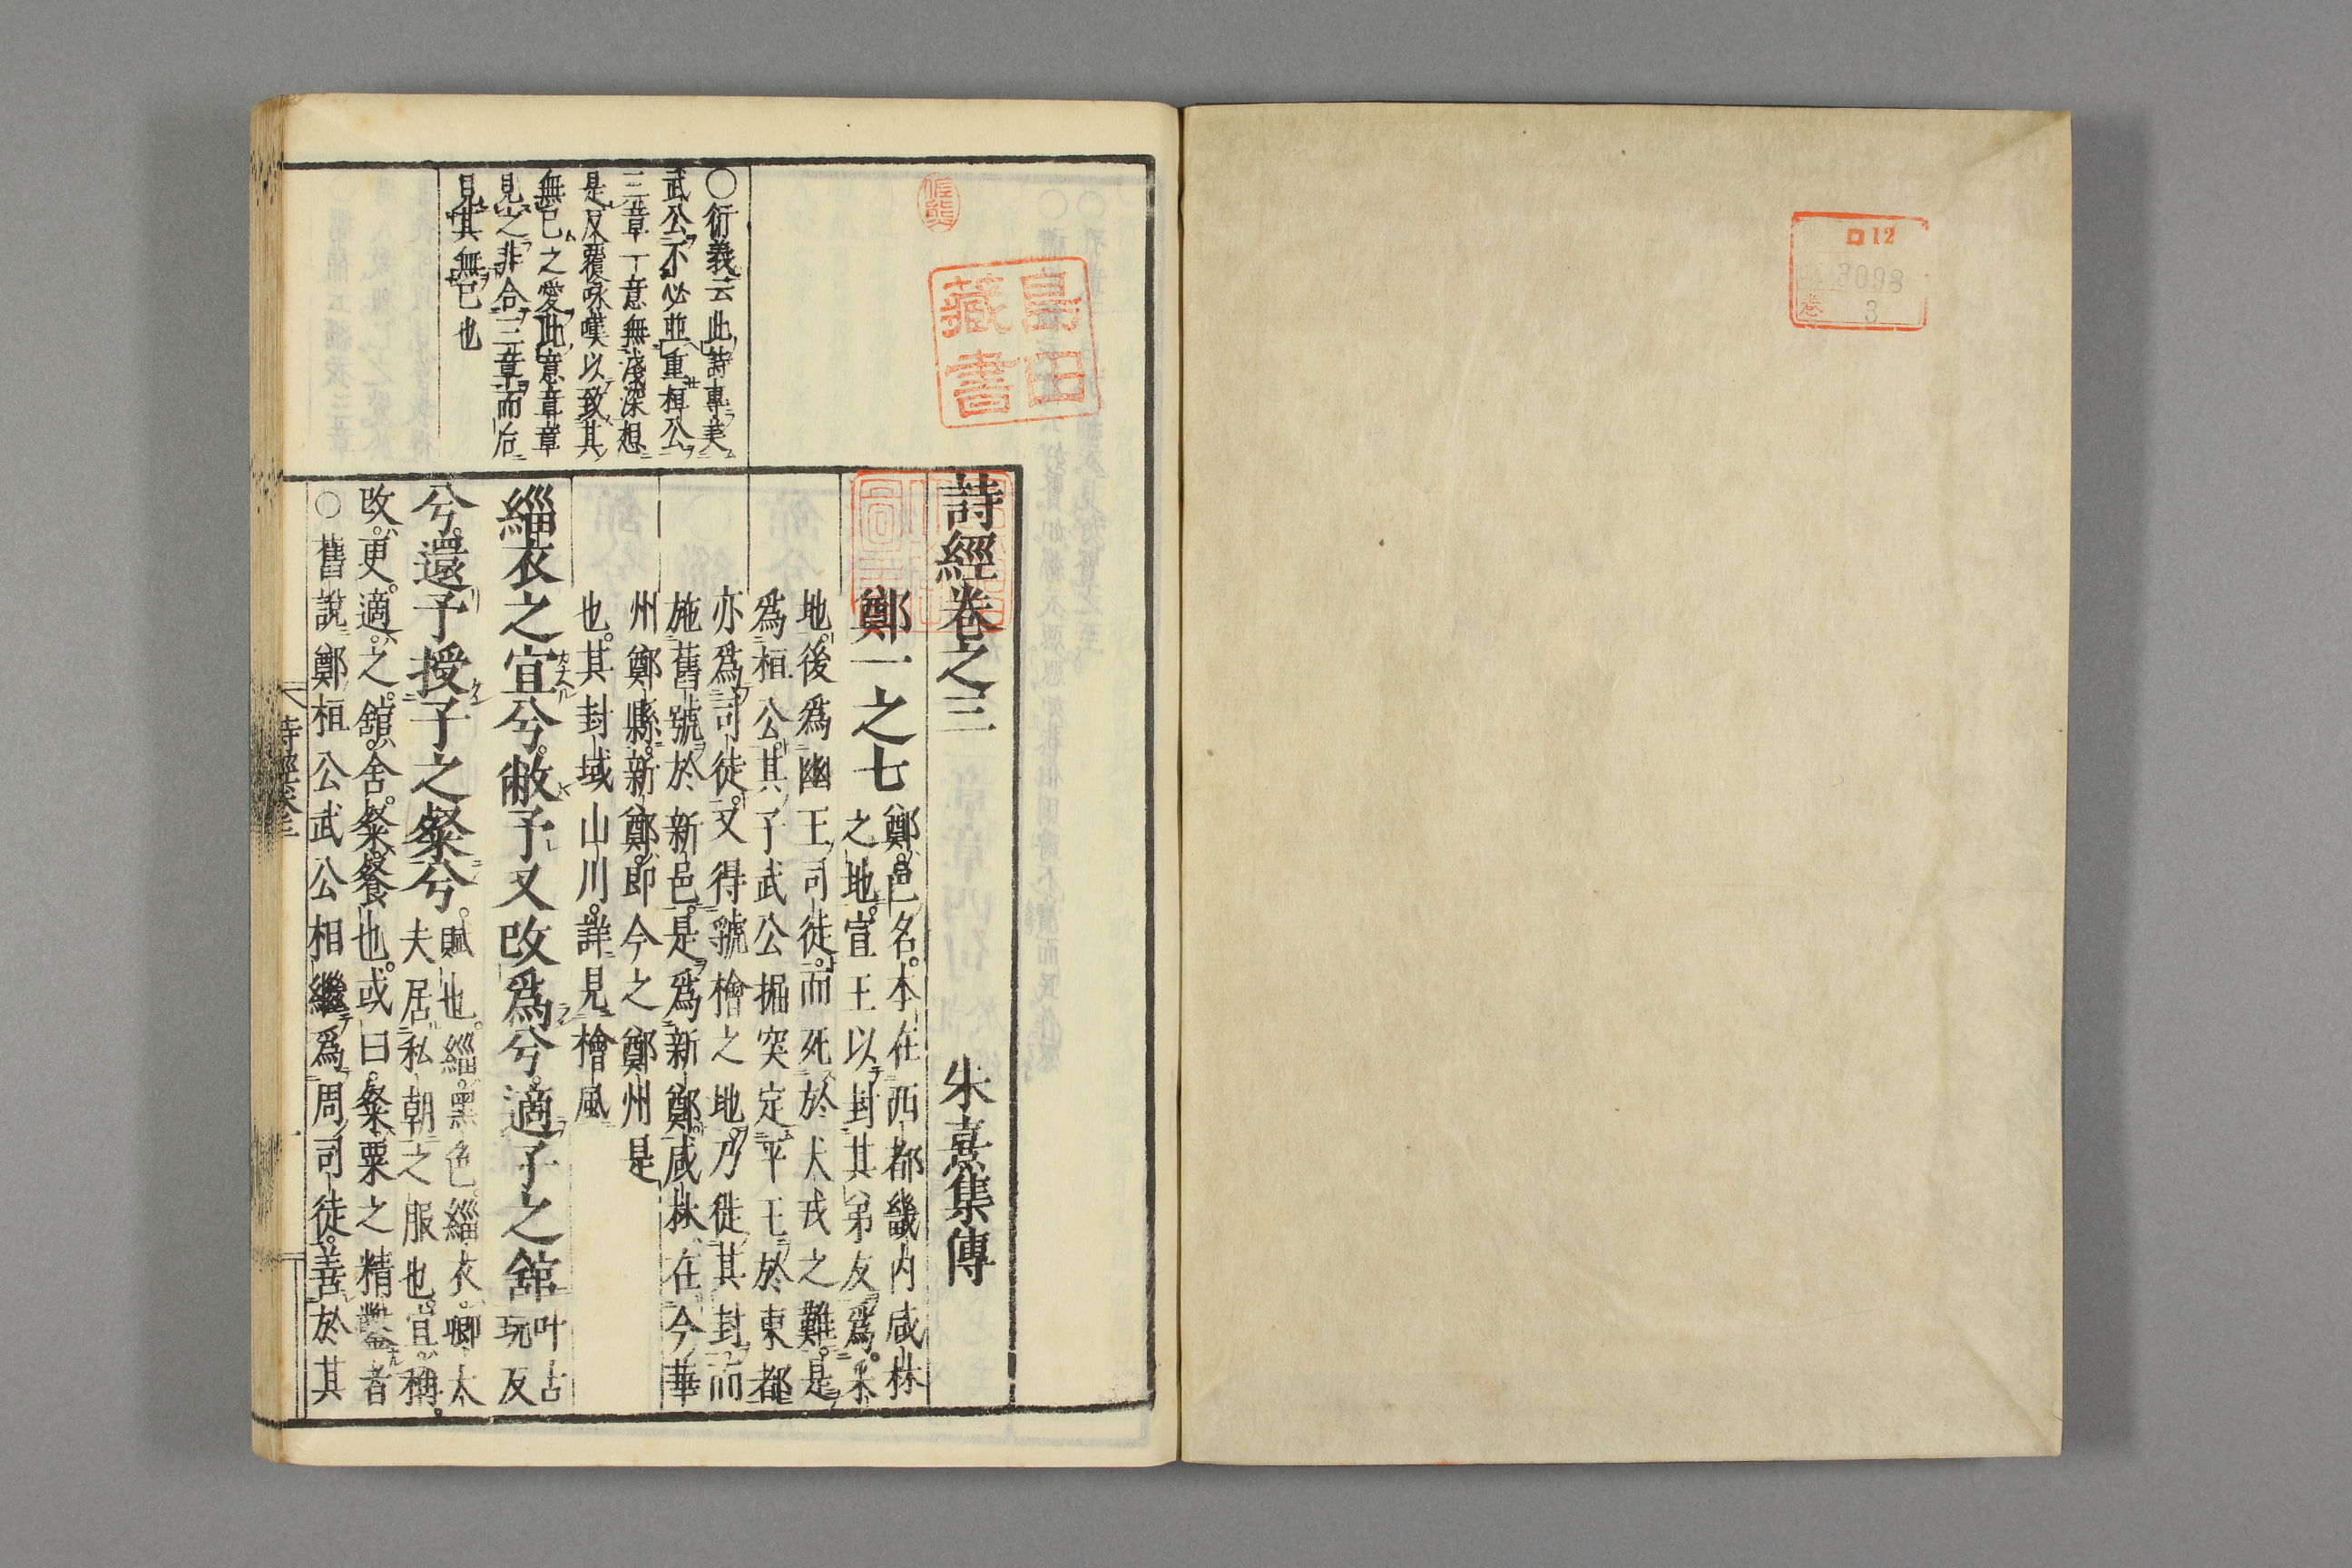 口12
3098
卷 3
島田
藏書
○衍義云此詩專美
武公不必並重桓公
三章一意無淺深想
是反覆咏嘆以致其
無已之愛此意章章
見之非合三章而后
見其無已也
詩經卷之三 朱熹集傳
鄭一之七
鄭邑名本在西都畿内咸林
之地宣王以封其弟友爲采
地後爲幽王司徒而死於犬戎之難是
爲桓公其子武公掘突定平王於東都
亦爲司徒又得虢檜之地乃徙其封而
施舊號於新邑是爲新鄭咸林在今華
州鄭縣新鄭即今之鄭州是
也其封域山川詳見檜風
緇衣之宜兮敝予又改爲兮適子之舘叶古玩反
兮還予授子之粲兮
賦也緇黒色緇衣卿大
夫居私朝之服也宜稱
改更適之舘舍粲餐也或曰粲粟之精鑿者
○舊說鄭桓公武公相繼爲周司徒善於其
詩經卷三 一